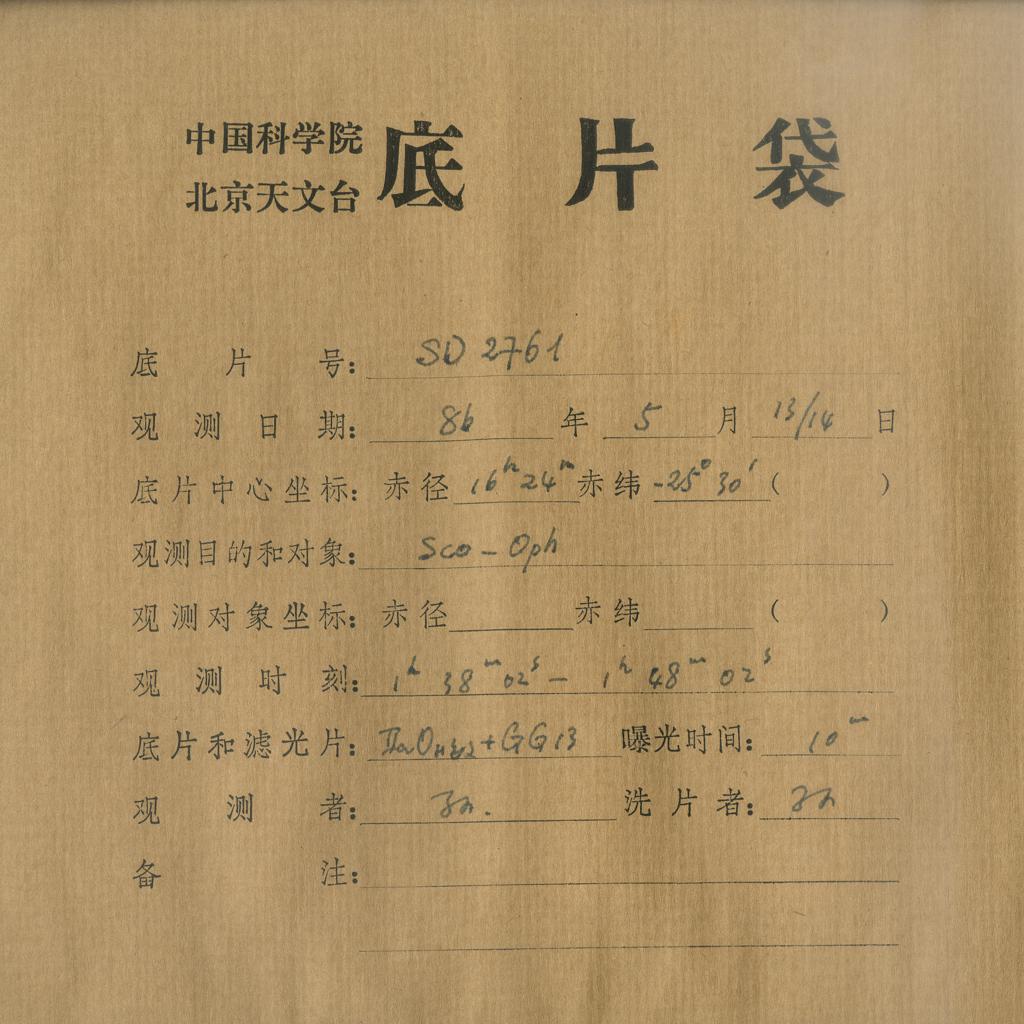 中国科学院
北京天文台
底片袋
底片号: SD 2761
观测日期: 86 年 5 月 13/14 日
底片中心坐标: 赤径 16ʰ 24ᵐ 赤纬 -25° 30′ ( )
观测目的和对象: Sco - Oph
观测对象坐标: 赤径 赤纬 ( )
观测时刻: 1ʰ 38ᵐ 02ˢ - 1ʰ 48ᵐ 02ˢ
底片和滤光片: IIaO + GG13 曝光时间: 10ᵐ
观测者: 洗片者:
备注: